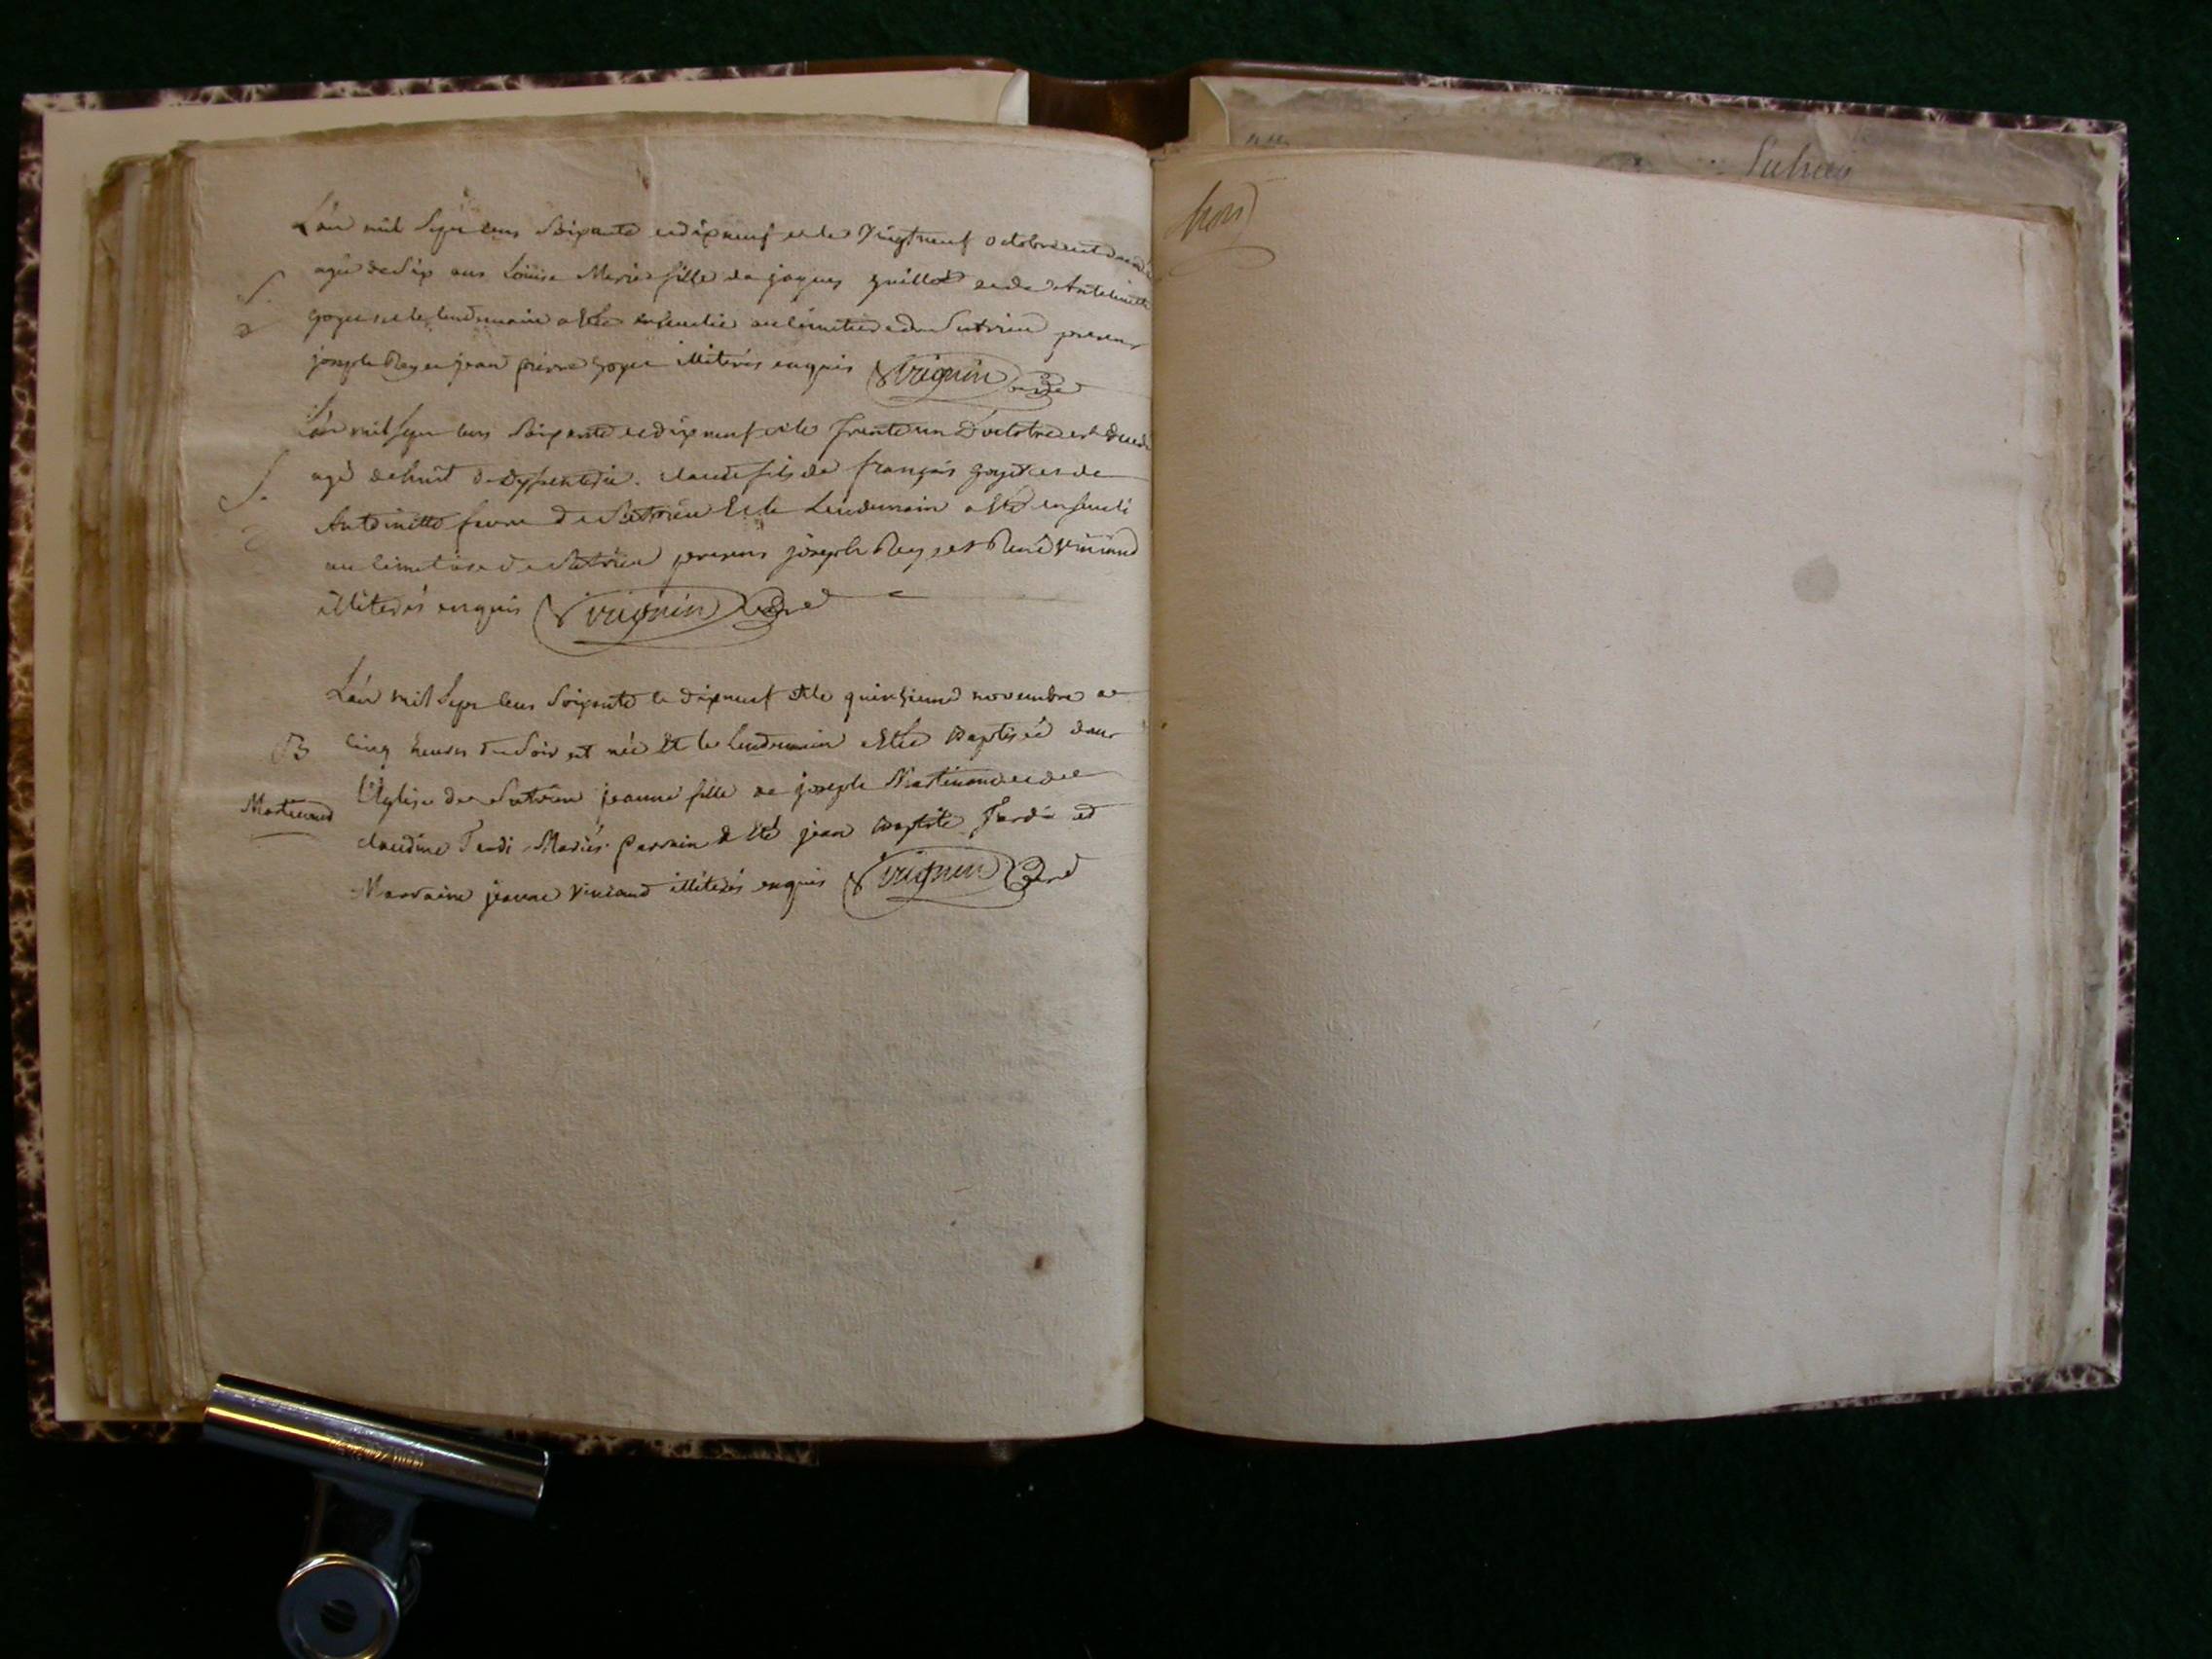 L'an mil sept cens soixante et dix neuf et le vingt neuf octobre est decedé
agée de six ans Loüise Marie fille de jaques guillot et de Antoinette
goyet et le lendemain a Été ensevelie au cimetiere de Sutrieu presens
joseph Rey et jean pierre goyet illiterés enquis Vrignin curé
L'an mil sept cens soixante et dix neuf et le trente un d'octobre est decedé
S. agé de huit de dyssenterie. claude fils de françois goyet et de
Antoinette favre de Sutrieu Et le Lendemain a Eté enseveli
au cimetiere de Sutrieu presens joseph Rey, et René Viniand
illiterés enquis Vrignin curé
L'an mil sept cens soixante et dix neuf et le quinzieme novembre a
B cinq heures du soir est née Et le lendemain a Eté Baptisée dans
L'Eglise de Sutrieu jeanne fille de joseph Martinand et de
Martinand
claudine Tardi Mariés. Parrain a Eté jean Baptiste Tardi et
Marraine jeanne Viniand illiterés enquis Vrignin curé